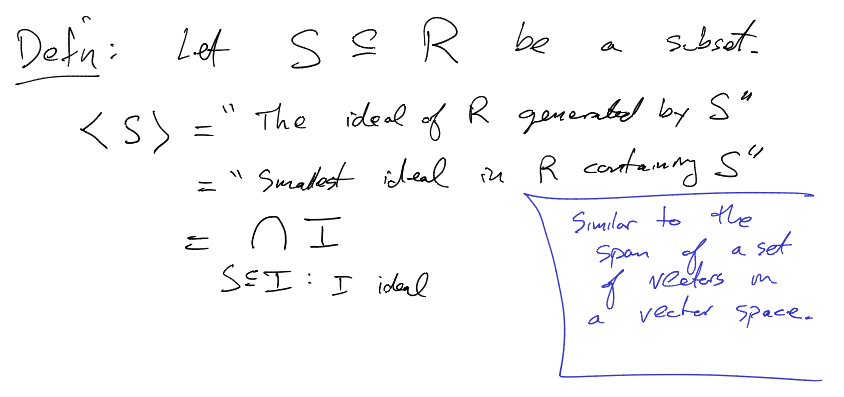 Defn: Let S ⊆ R be a subset.
<S> = "The ideal of R generated by S"
= "Smallest ideal in R containing S"
= ∩ I
S⊆I : I ideal
Similar to the
span of a set
of vectors in
a vector space.